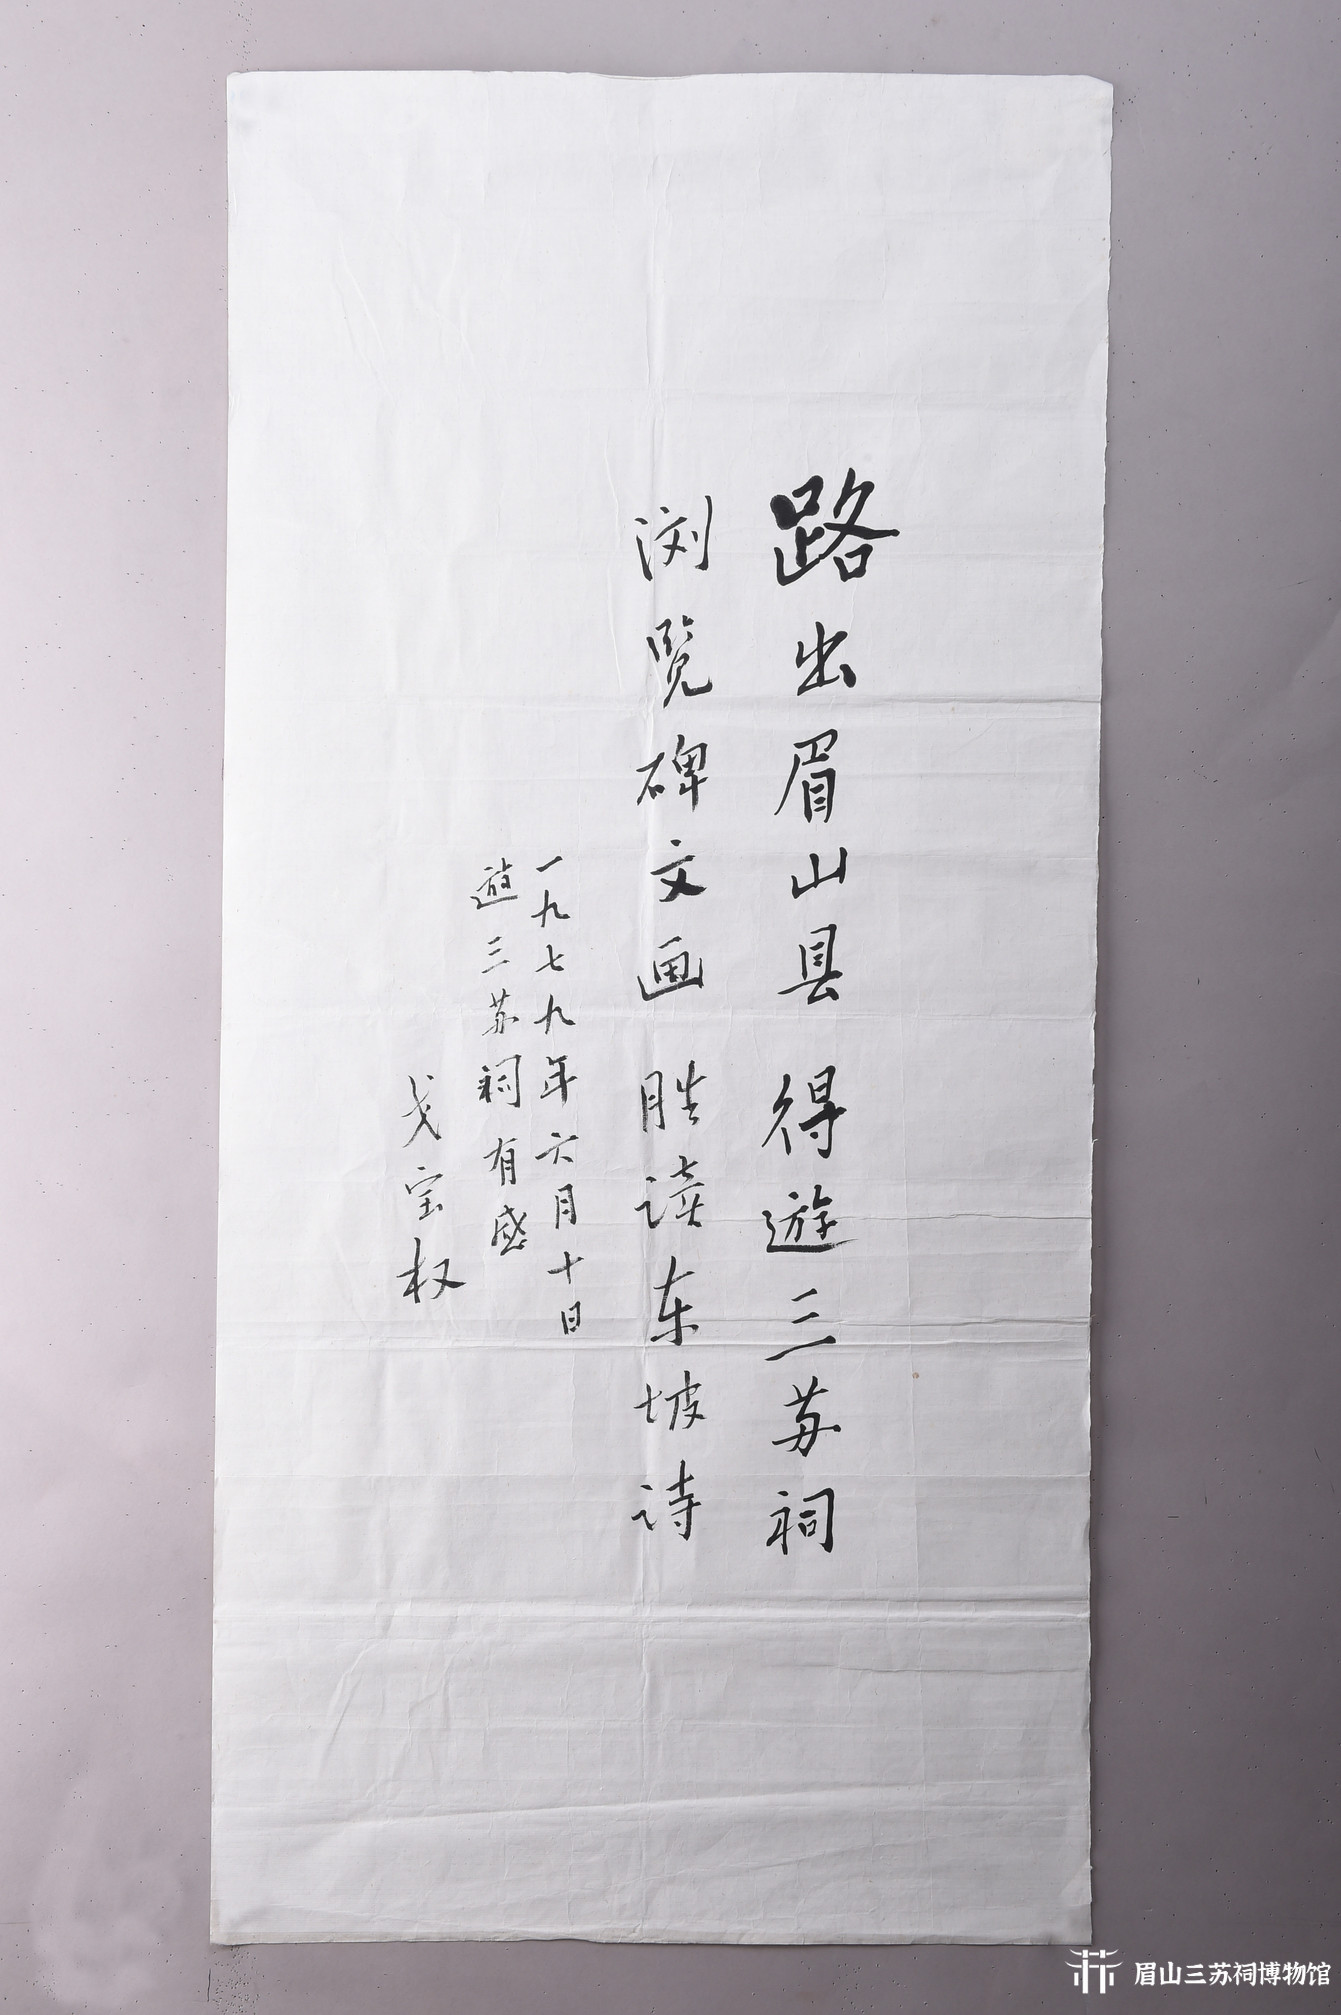 路出眉山县 得遊三苏祠
浏览碑文画 胜读东坡诗
一九七九年六月十日
遊三苏祠有感
戈宝权
眉山三苏祠博物馆